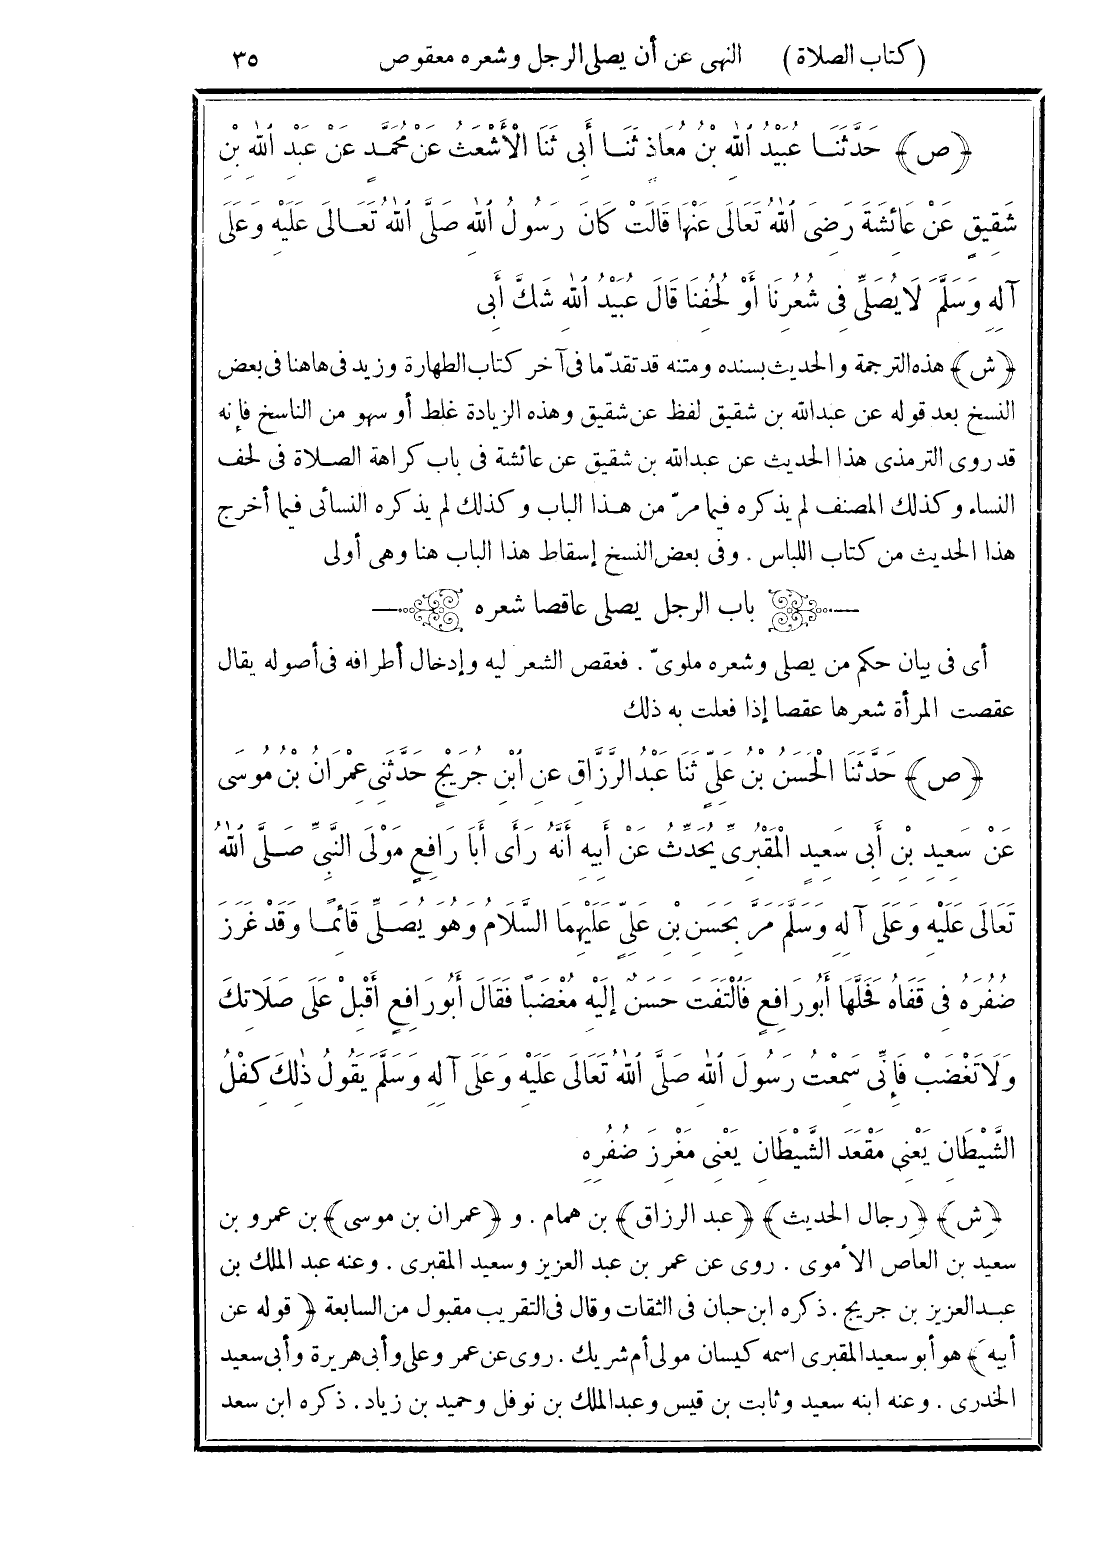 (كتاب الصلاة) النهى عن أن يصلى الرجل وشعره معقوص ٣٥
﴿ص﴾ حَدَّثَنَا عُبَيْدُ ٱللهِ بْنُ مُعَاذٍ ثَنَا أَبِى ثَنَا الْأَشْعَثُ عَنْ مُحَمَّدٍ عَنْ عَبْدِ ٱللهِ بْنِ
شَقِيقٍ عَنْ عَائِشَةَ رَضِىَ ٱللهُ تَعَالَى عَنْهَا قَالَتْ كَانَ رَسُولُ ٱللهِ صَلَّى ٱللهُ تَعَالَى عَلَيْهِ وَعَلَى
آلِهِ وَسَلَّمَ لَا يُصَلِّى فِى شُعُرِنَا أَوْ لُحُفِنَا قَالَ عُبَيْدُ ٱللهِ شَكَّ أَبِى
﴿ش﴾ هذه الترجمة والحديث بسنده ومتنه قد تقدّما فى آخر كتاب الطهارة وزيد فى هاهنا فى بعض
النسخ بعد قوله عن عبدالله بن شقيق لفظ عن شقيق وهذه الزيادة غلط أو سهو من الناسخ فإنه
قد روى الترمذى هذا الحديث عن عبدالله بن شقيق عن عائشة فى باب كراهة الصلاة فى لحف
النساء وكذلك المصنف لم يذكره فيما مرّ من هذا الباب وكذلك لم يذكره النسائى فيما أخرج
هذا الحديث من كتاب اللباس. وفى بعض النسخ إسقاط هذا الباب هنا وهى أولى
باب الرجل يصلى عاقصا شعره
أى فى بيان حكم من يصلى وشعره ملوىّ. فعقص الشعر ليه وإدخال أطرافه فى أصوله يقال
عقصت المرأة شعرها عقصا إذا فعلت به ذلك
﴿ص﴾ حَدَّثَنَا الْحَسَنُ بْنُ عَلِىٍّ ثَنَا عَبْدُ الرَّزَّاقِ عَنِ ٱبْنِ جُرَيْجٍ حَدَّثَنِى عِمْرَانُ بْنُ مُوسَى
عَنْ سَعِيدِ بْنِ أَبِى سَعِيدٍ الْمَقْبُرِىِّ يُحَدِّثُ عَنْ أَبِيهِ أَنَّهُ رَأَى أَبَا رَافِعٍ مَوْلَى النَّبِىِّ صَلَّى ٱللهُ
تَعَالَى عَلَيْهِ وَعَلَى آلِهِ وَسَلَّمَ مَرَّ بِحَسَنِ بْنِ عَلِىٍّ عَلَيْهِمَا السَّلَامُ وَهُوَ يُصَلِّى قَائِمًا وَقَدْ غَرَزَ
ضُفُرَهُ فِى قَفَاهُ فَحَلَّهَا أَبُورَافِعٍ فَٱلْتَفَتَ حَسَنٌ إِلَيْهِ مُغْضَبًا فَقَالَ أَبُورَافِعٍ أَقْبِلْ عَلَى صَلَاتِكَ
وَلَا تَغْضَبْ فَإِنِّى سَمِعْتُ رَسُولَ ٱللهِ صَلَّى ٱللهُ تَعَالَى عَلَيْهِ وَعَلَى آلِهِ وَسَلَّمَ يَقُولُ ذٰلِكَ كِفْلُ
الشَّيْطَانِ يَعْنِى مَقْعَدَ الشَّيْطَانِ يَعْنِى مَغْرِزَ ضُفُرِهِ
﴿ش﴾ ﴿رجال الحديث﴾ ﴿عبد الرزاق﴾ بن همام. و ﴿عمران بن موسى﴾ بن عمرو بن
سعيد بن العاص الأموى. روى عن عمر بن عبد العزيز وسعيد المقبرى. وعنه عبد الملك بن
عبدالعزيز بن جريج. ذكره ابن حبان فى الثقات وقال فى التقريب مقبول من السابعة ﴿قوله عن
أبيه﴾ هو أبو سعيد المقبرى اسمه كيسان مولى أم شريك. روى عن عمر وعلى وأبى هريرة وأبى سعيد
الخدرى. وعنه ابنه سعيد وثابت بن قيس وعبدالملك بن نوفل وحميد بن زياد. ذكره ابن سعد